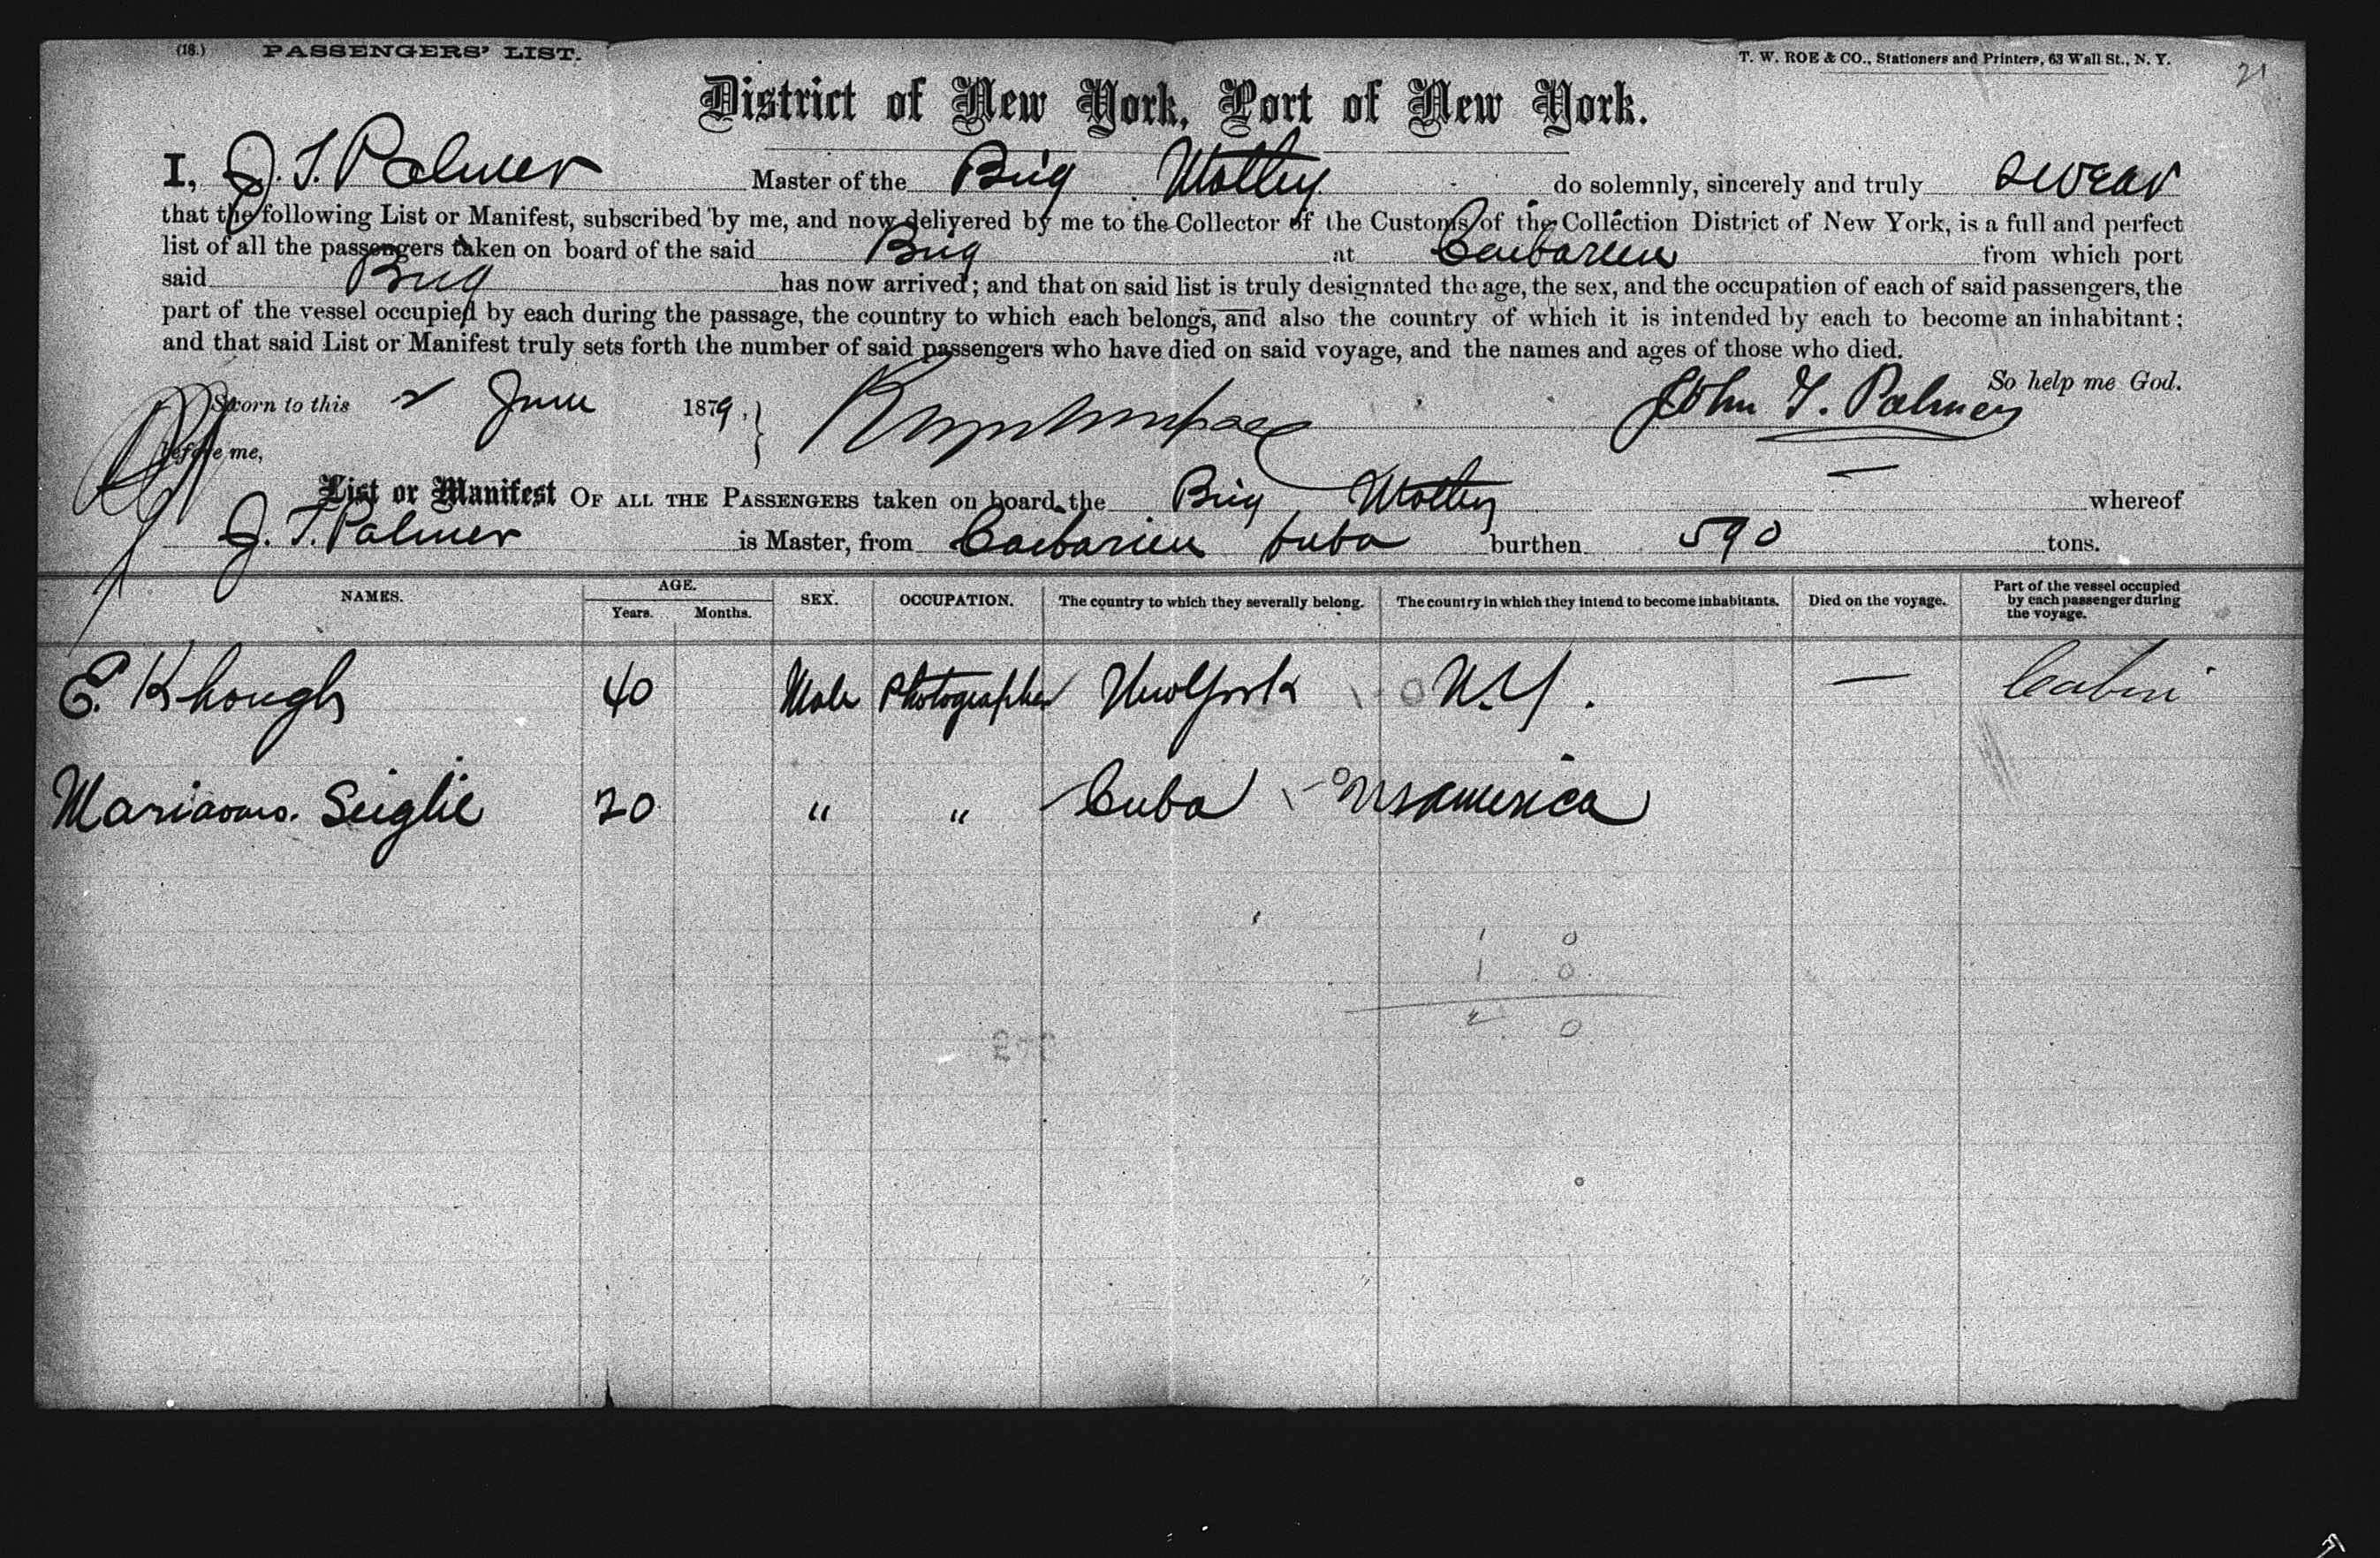 (18.) PASSENGERS' LIST. T. W. ROE & CO., Stationers and Printers, 63 Wall St., N. Y. 21
District of New York, Port of New York.
I, J. T. Palmer Master of the Brig Motley do solemnly, sincerely and truly swear
that the following List or Manifest, subscribed by me, and now delivered by me to the Collector of the Customs of the Collection District of New York, is a full and perfect
list of all the passengers taken on board of the said Brig at Caibarien from which port
said Brig has now arrived; and that on said list is truly designated the age, the sex, and the occupation of each of said passengers, the
part of the vessel occupied by each during the passage, the country to which each belongs, and also the country of which it is intended by each to become an inhabitant;
and that said List or Manifest truly sets forth the number of said passengers who have died on said voyage, and the names and ages of those who died.
So help me God.
Sworn to this 2 June 1879, John T. Palmer
before me,
List or Manifest OF ALL THE PASSENGERS taken on board the Brig Motley whereof
J. T. Palmer is Master, from Caibarien Cuba burthen 590 tons.
NAMES. AGE. Years. Months. SEX. OCCUPATION. The country to which they severally belong. The country in which they intend to become inhabitants. Died on the voyage. Part of the vessel occupied by each passenger during the voyage.
E. Khough 40 Male Photographer New York \ 0 N.Y. — Cabin
Seiglie 20 " " Cuba \ 0 America
1 0
1 0
2 0